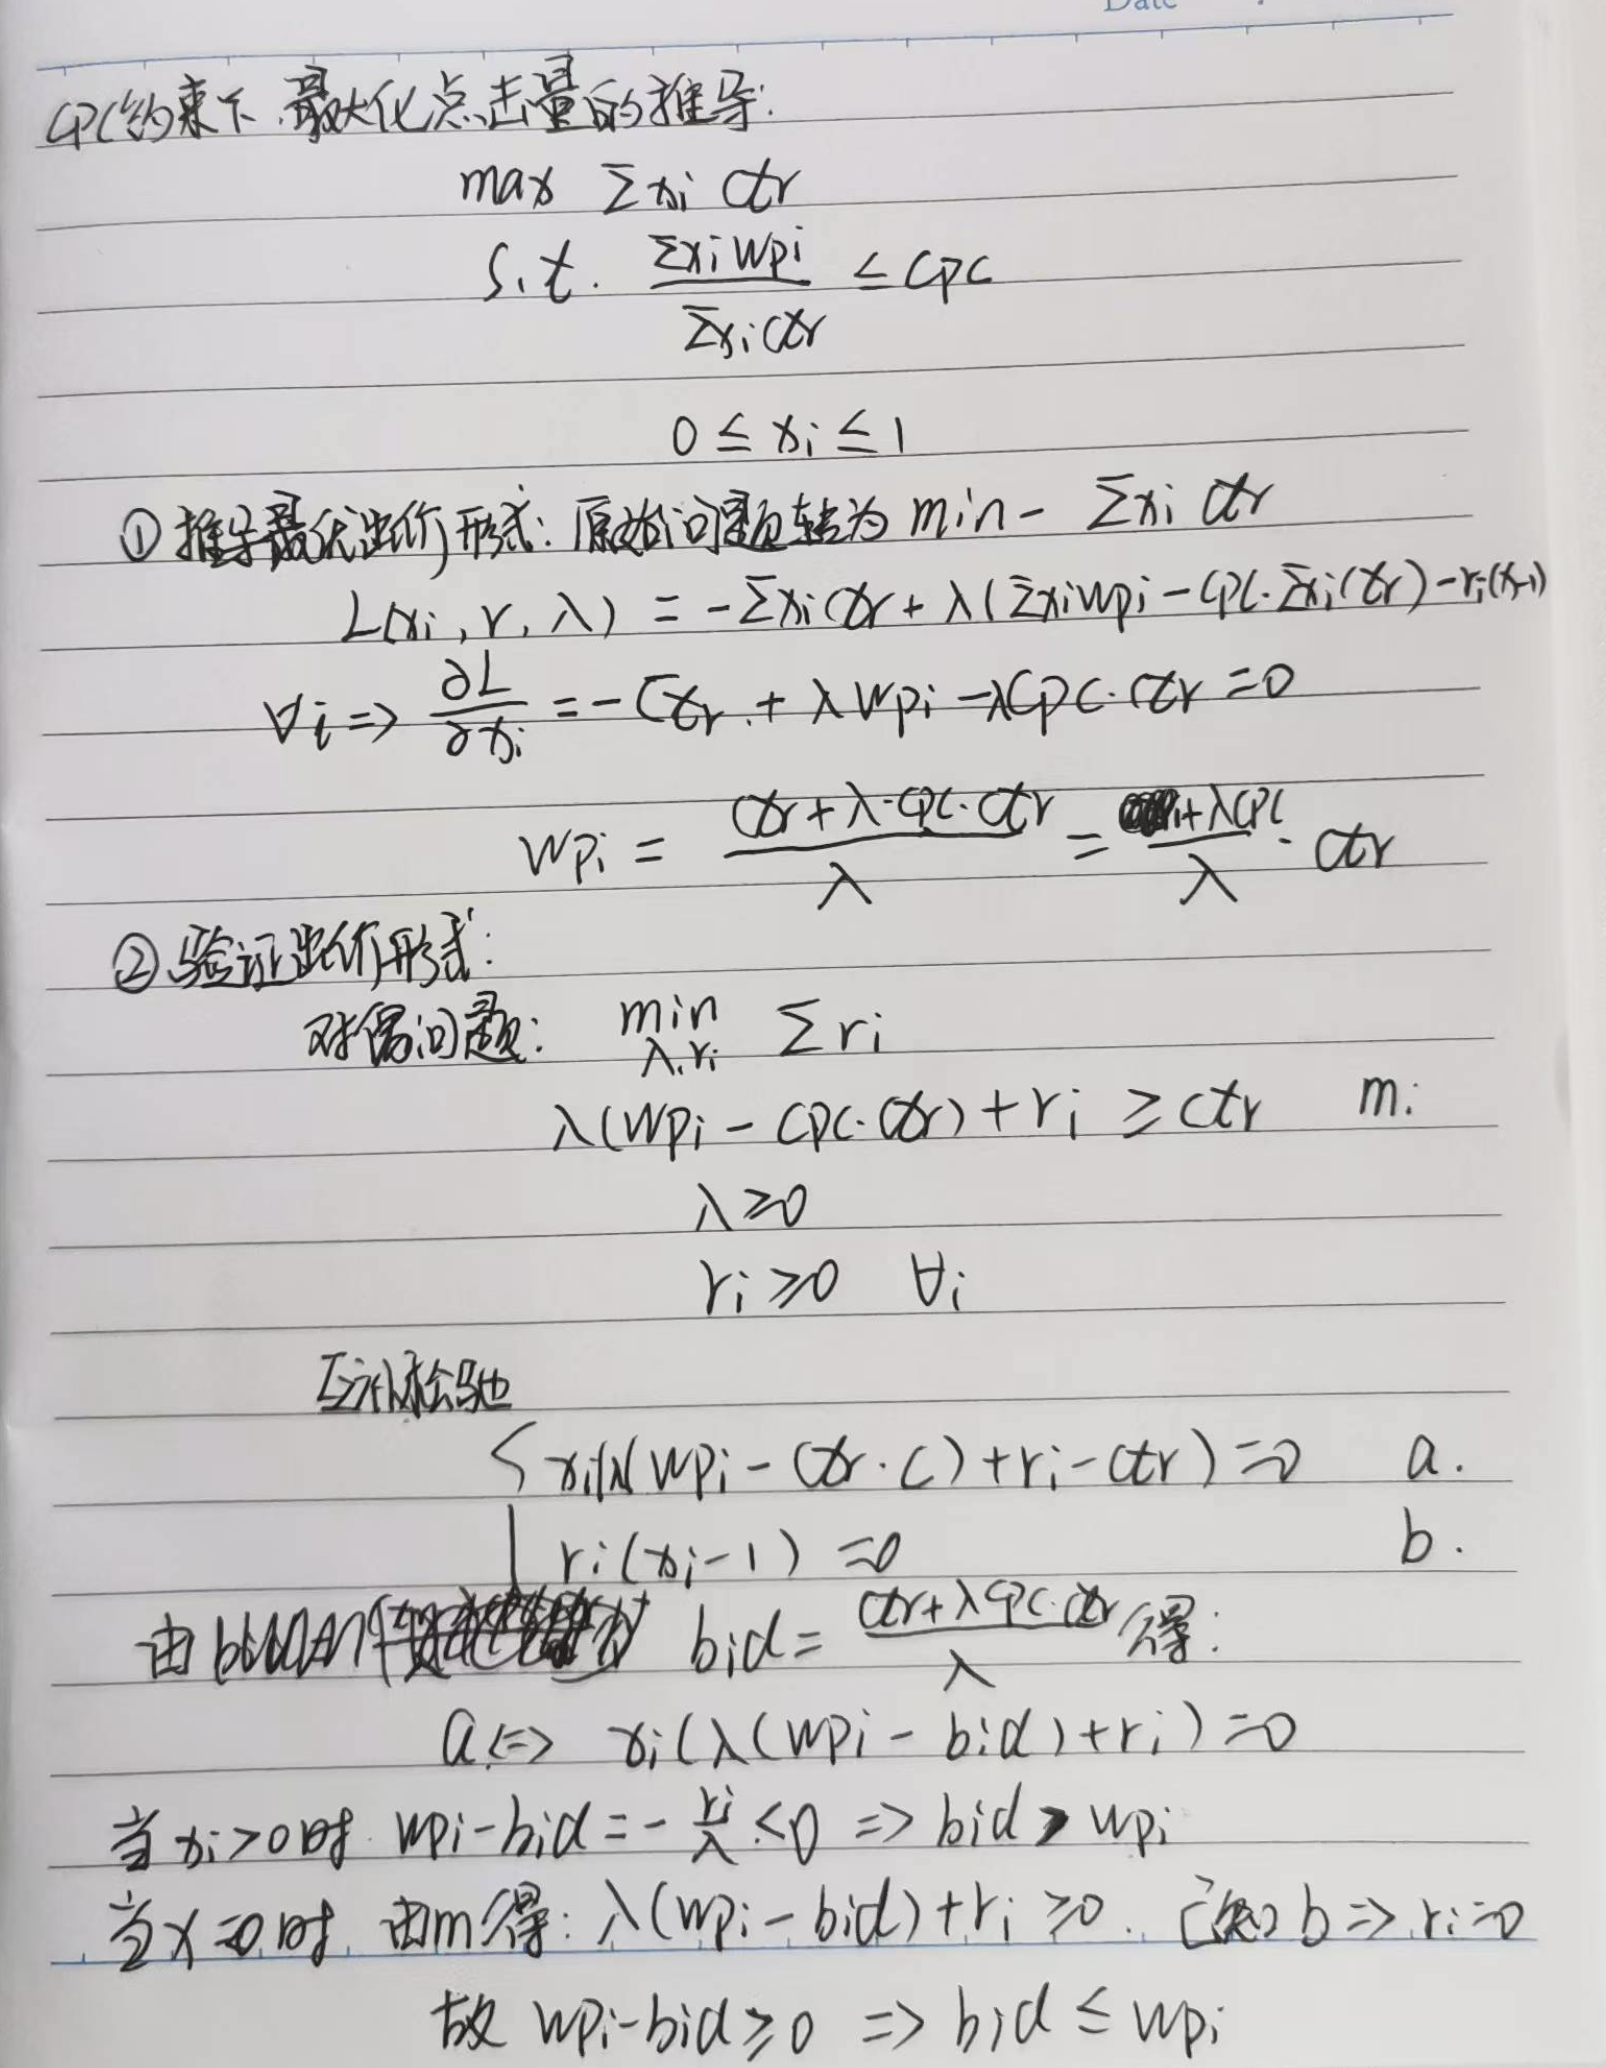 Date
CPC约束下最大化点击量的推导:
max Σxi ctr
s.t. Σxiwpi / Σxictr ≤ cpc
0 ≤ xi ≤ 1
①推导最优出价形式: 原始问题转为 min - Σxi ctr
L(xi, r, λ) = -Σxictr + λ(Σxiwpi - CPC·Σxictr) - ri(x-1)
∀i => ∂L/∂xi = -Ctr + λwpi - λCpc·ctr = 0
wpi = (ctr + λ·cpc·ctr)/λ = (1+λcpc)/λ · ctr
②验证出价形式:
对偶问题: min λ,ri Σri
λ(wpi - cpc·ctr) + ri ≥ ctr m.
λ ≥ 0
ri ≥ 0 ∀i
互补松弛
{ xi(λ(wpi - ctr·c) + ri - ctr) = 0 a.
ri(xi - 1) = 0 b.
由 bid = (ctr + λcpc·ctr)/λ 得:
a <=> xi(λ(wpi - bid) + ri) = 0
当xi>0时 wpi - bid = - ri/λ < 0 => bid > wpi
当x=0时 由m得: λ(wpi - bid) + ri ≥ 0. 已知b => ri=0
故 wpi - bid ≥ 0 => bid ≤ wpi